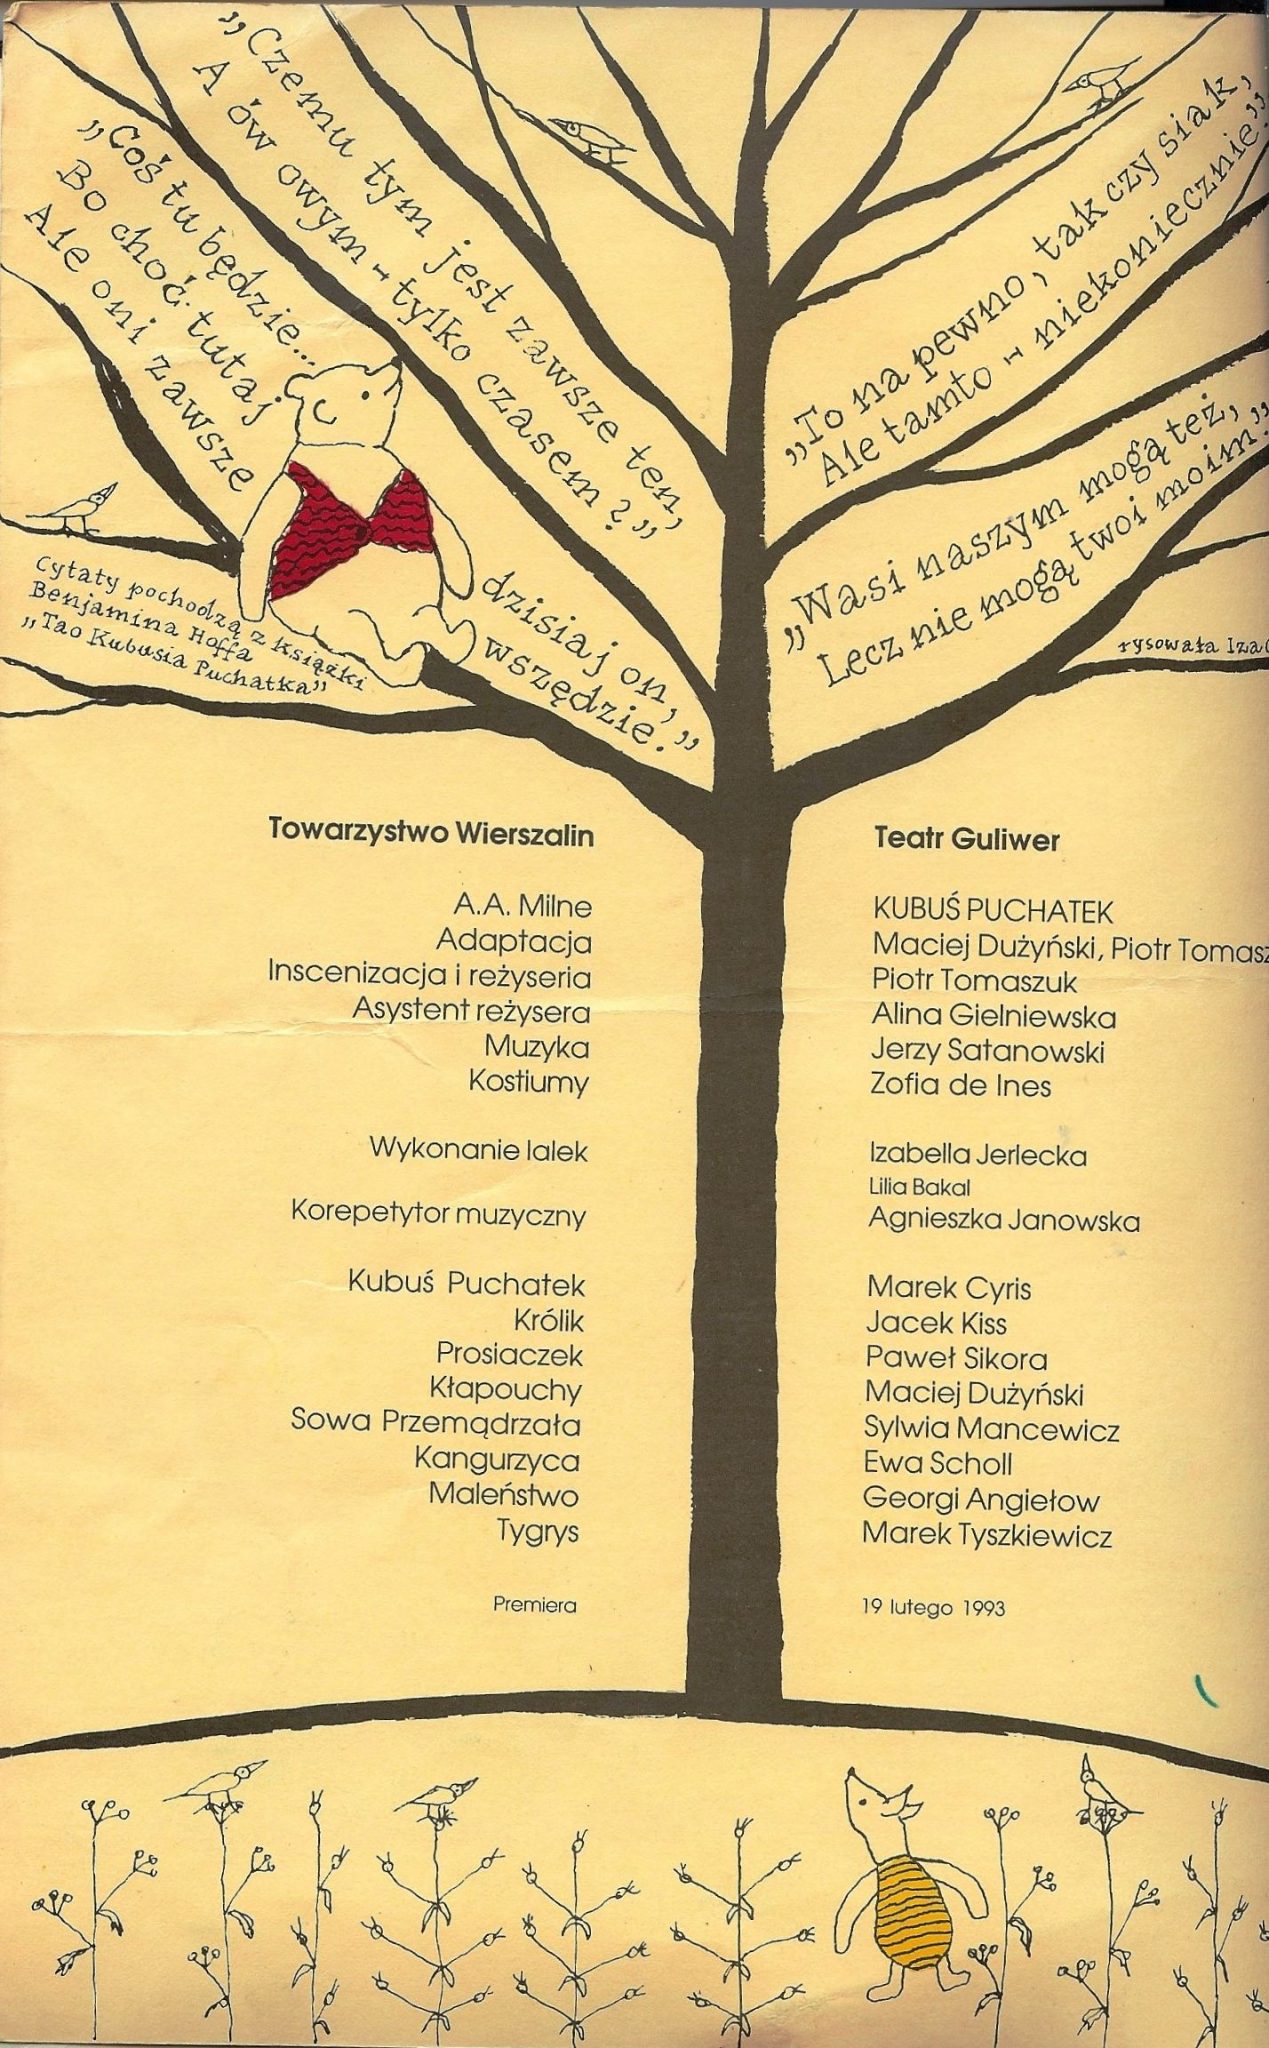 „Czemu tym jest zawsze ten,
A ów owym - tylko czasem?”
„Coś tu będzie...
Bo choć tutaj dzisiaj on,
Ale oni zawsze wszędzie.”
„To na pewno, tak czy siak,
Ale tamto - niekoniecznie.”
„Wasi naszym mogą też,
Lecz nie mogą twoi moim.”
Cytaty pochodzą z książki
Benjamina Hoffa
„Tao Kubusia Puchatka”
rysowała Iza
Towarzystwo Wierszalin Teatr Guliwer
A.A. Milne KUBUŚ PUCHATEK
Adaptacja Maciej Dużyński, Piotr Tomasz
Inscenizacja i reżyseria Piotr Tomaszuk
Asystent reżysera Alina Gielniewska
Muzyka Jerzy Satanowski
Kostiumy Zofia de Ines
Wykonanie lalek Izabella Jerlecka
Lilia Bakal
Korepetytor muzyczny Agnieszka Janowska
Kubuś Puchatek Marek Cyris
Królik Jacek Kiss
Prosiaczek Paweł Sikora
Kłapouchy Maciej Dużyński
Sowa Przemądrzała Sylwia Mancewicz
Kangurzyca Ewa Scholl
Maleństwo Georgi Angiełow
Tygrys Marek Tyszkiewicz
Premiera 19 lutego 1993